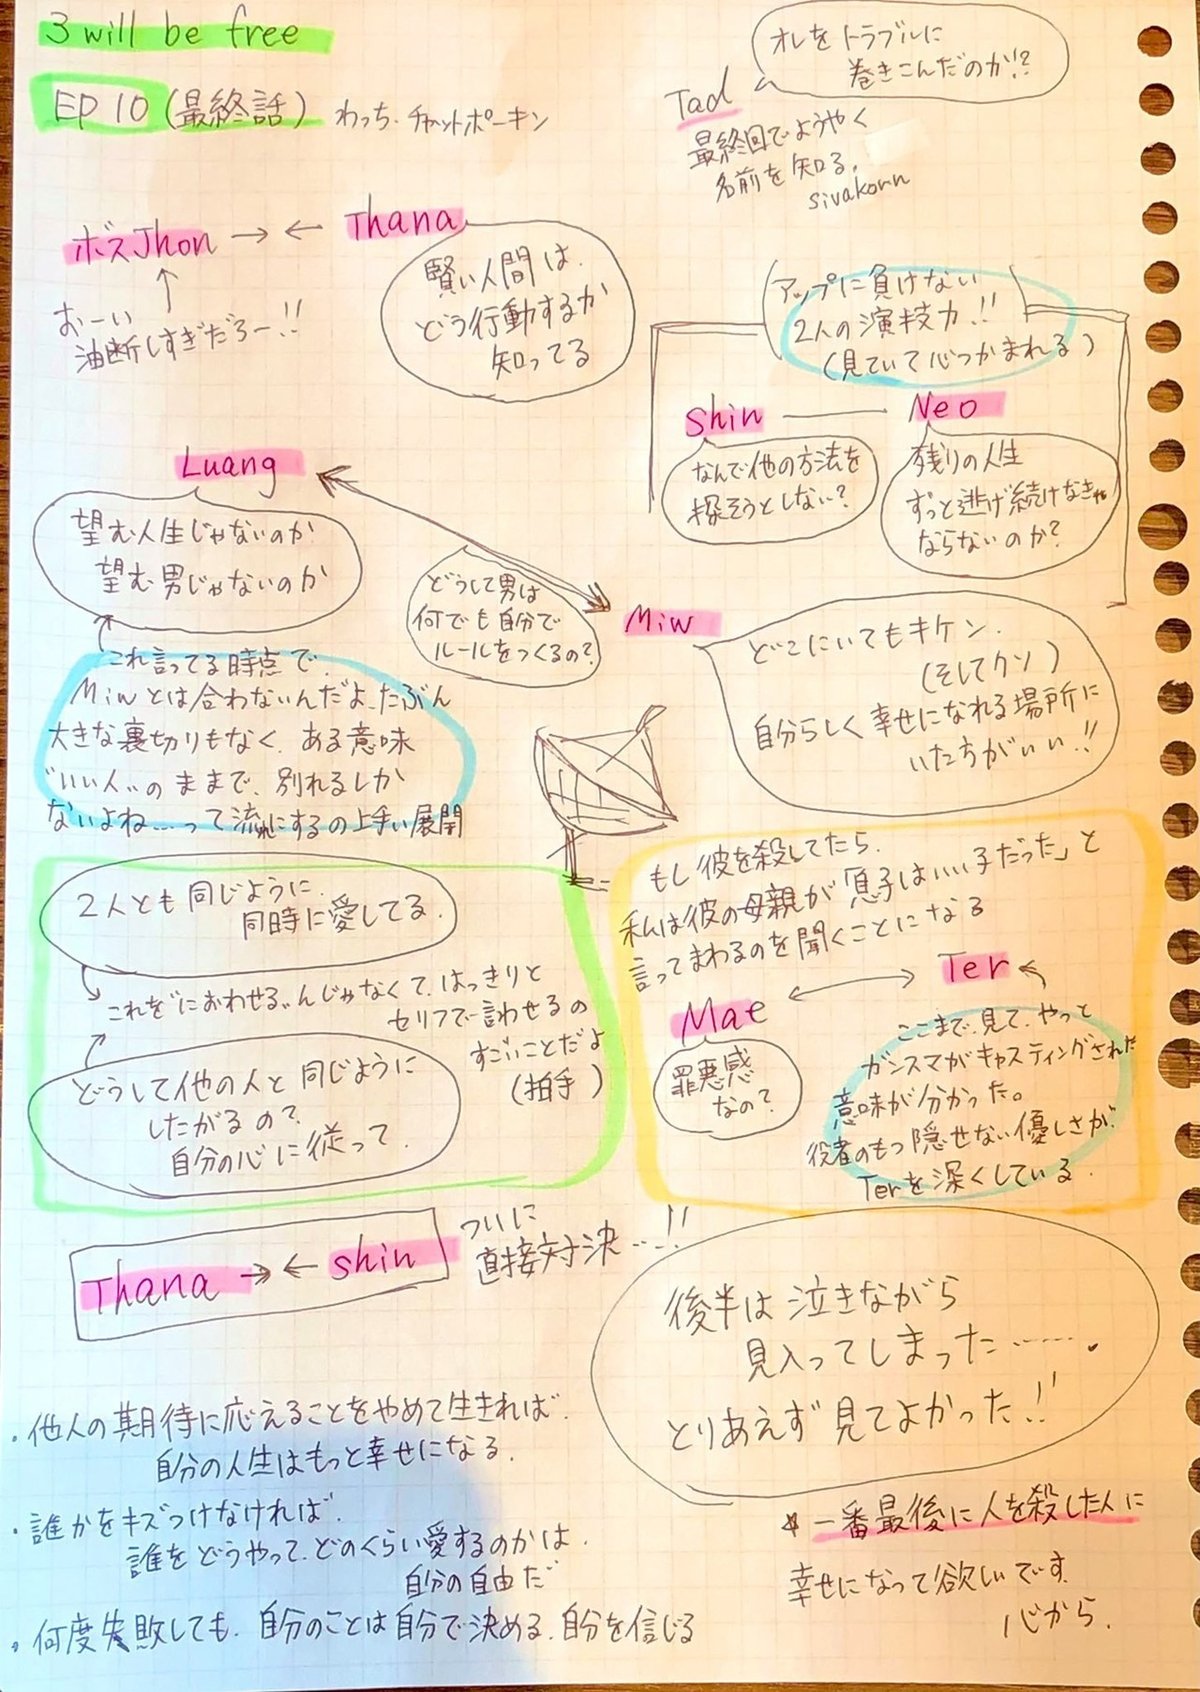 3 will be free
EP 10 (最終話) わっち・チャットポーキン
オレをトラブルに
巻きこんだのか!?
Tad
最終回でようやく
名前を知る。
sivakorn
ボスJhon → ← Thana
おーい
油断しすぎだろー!!
賢い人間は、
どう行動するか
知ってる
アップに負けない
2人の演技力!!
(見ていて心つかまれる)
Shin Neo
なんで他の方法を
探そうとしない?
残りの人生
ずっと逃げ続けなきゃ
ならないのか?
Luang
望む人生じゃないのか
望む男じゃないのか
どうして男は
何でも自分で
ルールをつくるの?
Miw
どこにいてもキケン.
(そしてクソ)
自分らしく幸せになれる場所に
いた方がいい!!
これ言ってる時点で、
Miwとは合わないんだよ、たぶん
大きな裏切りもなく、ある意味
"いい人"のままで、別れるしか
ないよね……って流れにするの上手い展開
2人とも同じように、
同時に愛してる.
これを"におわせる"んじゃなくて、はっきりと
セリフで言わせるの
すごいことだよ
(拍手)
どうして他の人と同じように
したがるの?
自分の心に従って.
もし彼を殺してたら、
私は彼の母親が「息子はいい子だった」と
言ってまわるのを聞くことになる
Mae ←→ Ter
罪悪感
なの?
ここまで見て、やっと
ガンスマがキャスティングされた
意味が分かった。
役者のもつ隠せない優しさが、
Terを深くしている.
Thana → ← shin
ついに
直接対決…!!
後半は泣きながら
見入ってしまった…….
とりあえず見てよかった!!
・他人の期待に応えることをやめて生きれば、
自分の人生はもっと幸せになる.
・誰かをキズつけなければ、
誰をどうやって、どのくらい愛するのかは、
自分の自由だ
・何度失敗しても、自分のことは自分で決める、自分を信じる
☆一番最後に人を殺した人に
幸せになって欲しいです。
心から.